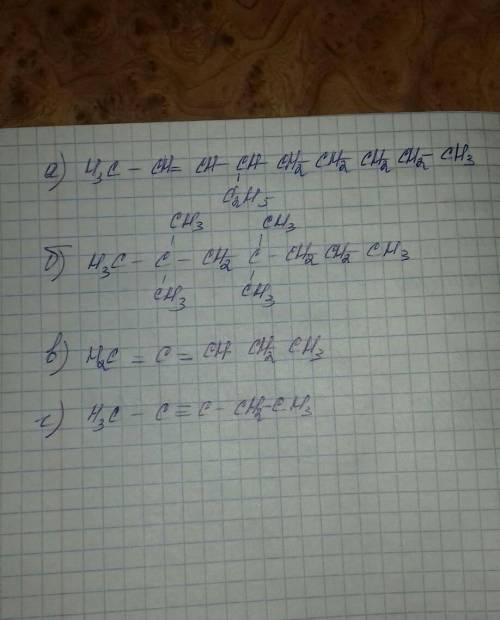 а) H₃C - CH = CH - CH - CH₂ - CH₂ - CH₂ - CH₂ - CH₃
C₂H₅
CH₃ CH₃
б) H₃C - C - CH₂ - C - CH₂ - CH₂ - CH₃
CH₃ CH₃
в) H₂C = C = CH - CH₂ - CH₃
г) H₃C - C ≡ C - CH₂ - CH₃